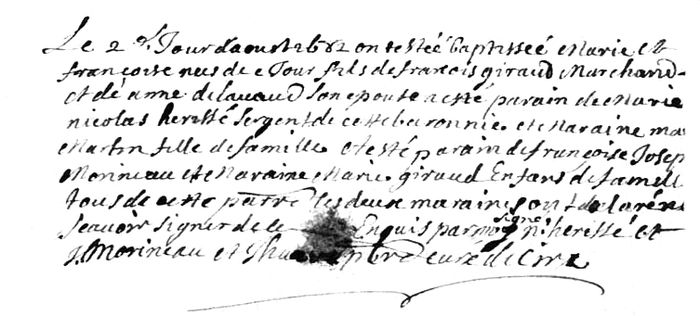 Le 2d Jour d'aoust 1682 on testéé baptisséé Marie et
francoise neés de ce Jour fils de francois giraud Marchand
et dé anne delavaud Son epouse a esté parain de Marie
nicolas herissé Sergent de cette baronnie et Maraine ma
Martin fille de famille et esté parain de francoise Josep
Morineau et Maraine Marie giraud Enfans de famell
tous de cette parre les deux maraines ont declaré ne
scauoir signer de ce Enquis par moy signe n: herissé et
J. Morineau et pbre cure de Cire